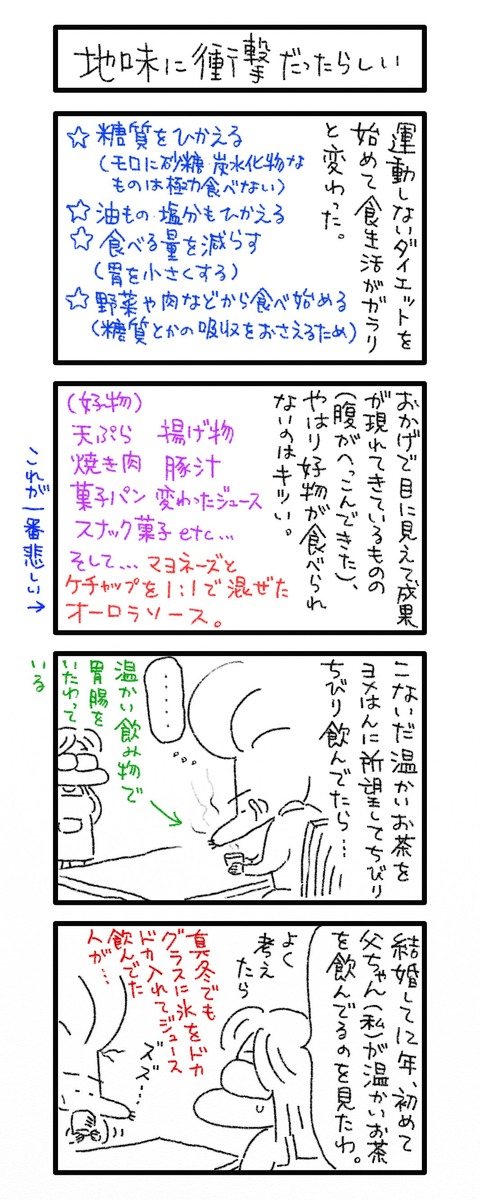 地味に衝撃だったらしい
運動しないダイエットを
始めて食生活がガラリ
と変わった。
☆糖質をひかえる
(モロに砂糖 炭水化物な
ものは極力食べない)
☆油もの 塩分もひかえる
☆食べる量を減らす
(胃を小さくする)
☆野菜や肉などから食べ始める
(糖質とかの吸収をおさえるため)
おかげで目に見えて成果
が現れてきているものの
(腹がへっこんできた)、
やはり好物が食べられ
ないのはキツい。
(好物)
天ぷら 揚げ物
焼き肉 豚汁
菓子パン 変わったジュース
スナック菓子 etc…
そして… マヨネーズと
ケチャップを1:1で混ぜた
オーロラソース。
これが一番悲しい→
こないだ温かいお茶を
ヨメはんに所望してちびり
ちびり飲んでたら…
……
温かい飲み物で
胃腸を
いたわって
いる
結婚して12年、初めて
父ちゃん(私)が温かいお茶
を飲んでるのを見たわ。
よく
考えたら
真冬でも
グラスに氷をドカ
ドカ入れてジュース
飲んでた
人が…
ズズ…